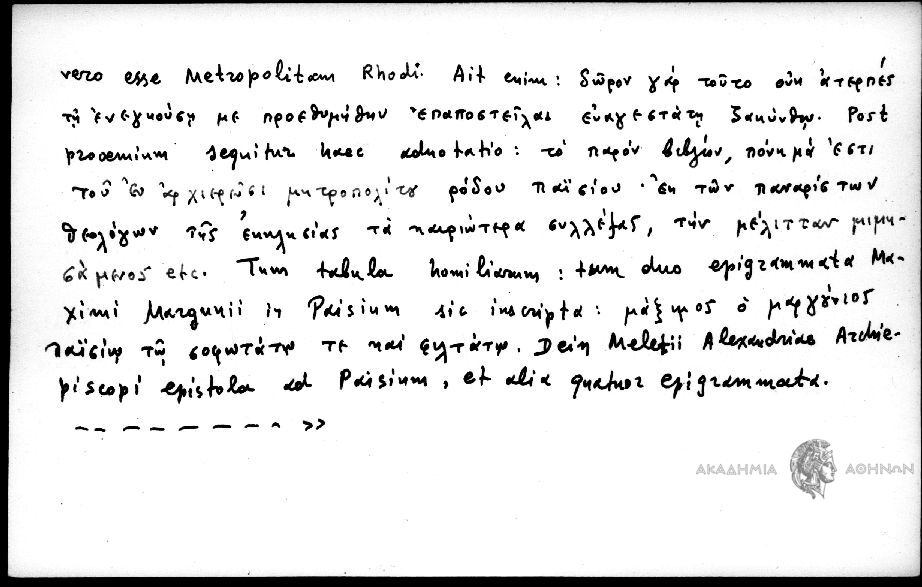 vero esse Metropolitam Rhodi. Ait enim: δῶρον γάρ τοῦτο οὐκ ἀτερπές
τῇ ἐνεγκούσῃ με προεθυμήθην ἐπαποστεῖλαι εὐαγεστάτῃ Ζακύνθῳ. Post
prooemium sequitur haec adnotatio: τό παρόν βιβλίον, πόνημά ἐστι
τοῦ ἐν ἀρχιερεῦσι μητροπολίτου ρόδου παϊσίου· ἐκ τῶν παναρίστων
θεολόγων τῆς ἐκκλησίας τά καιριώτερα συλλέξας, τήν μέλιτταν μιμη-
σάμενος etc. Tum tabula homiliarum: tum duo epigrammata Ma-
ximi Margunii in Paisium sic inscripta: μάξιμος ὁ μαργούνιος
παϊσίῳ τῷ σοφωτάτῳ τε καί φιλτάτῳ. Dein Meletii Alexandriae Archie-
piscopi epistola ad Paisium, et alia quatuor epigrammata.
— — — — — — — »
ΑΚΑΔΗΜΙΑ ΑΘΗΝΩΝ